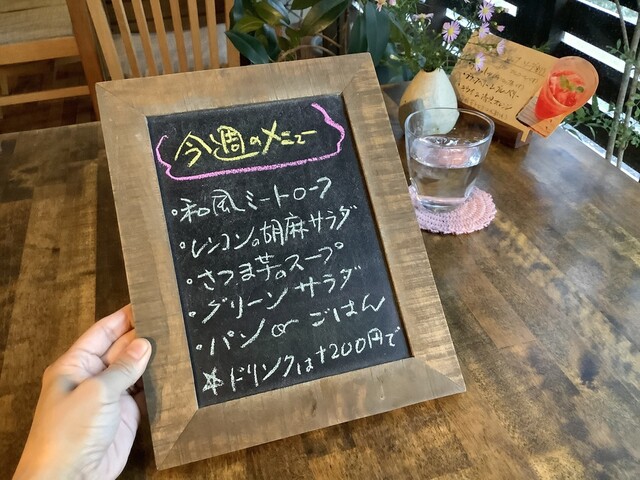 今週のメニュー
・和風ミートローフ
・レンコンの胡麻サラダ
・さつま芋のスープ
・グリーンサラダ
・パン or ごはん
☆ドリンクは+200円で